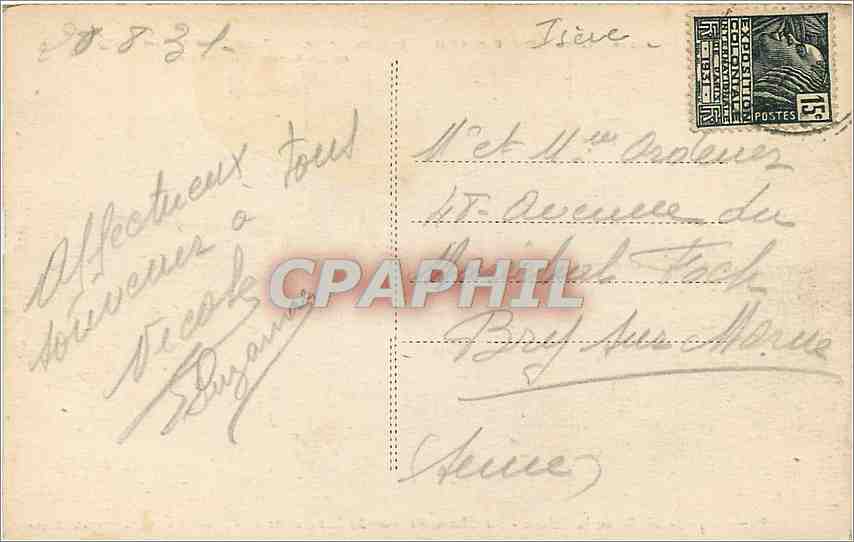 20-8-31-
Isère
EXPOSITION
COLONIALE
INTERNATIONALE
PARIS 1931
POSTES
15c
Affectueux
souvenir à tous
Nicole
Suzanne
Mr et Mme
45 Avenue du
Maréchal Foch
Bry sur Marne
(Seine)
CPAPHIL